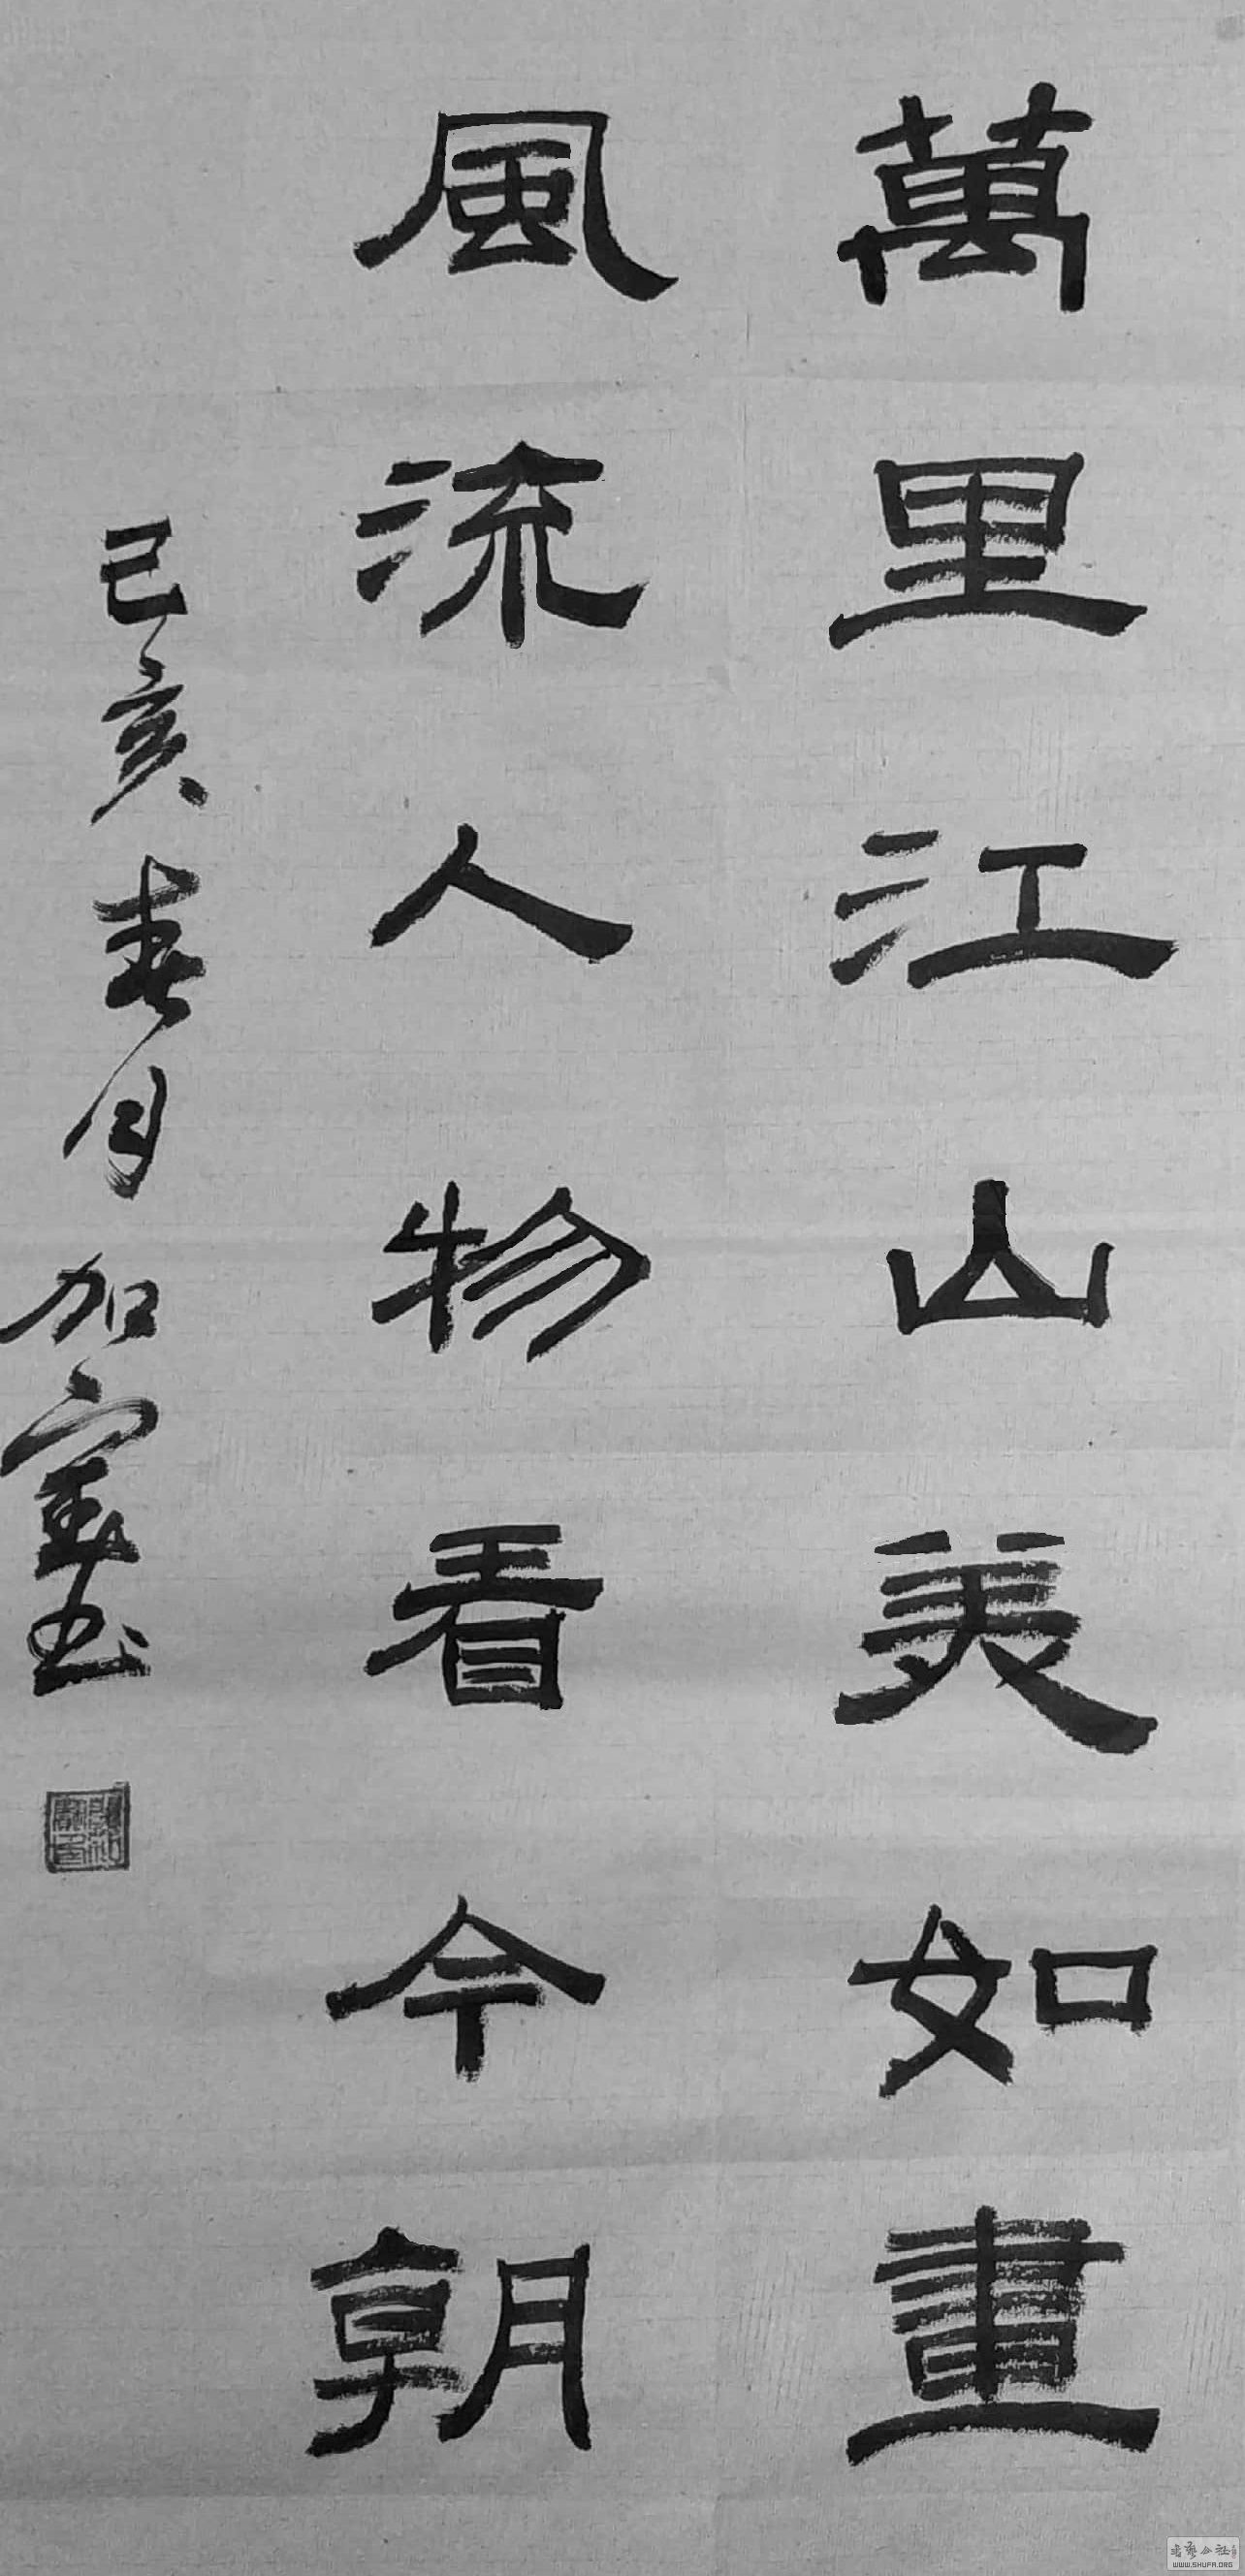 萬里江山美如畫
風流人物看今朝
己亥春月加寶书
WWW.SHUFA.ORG